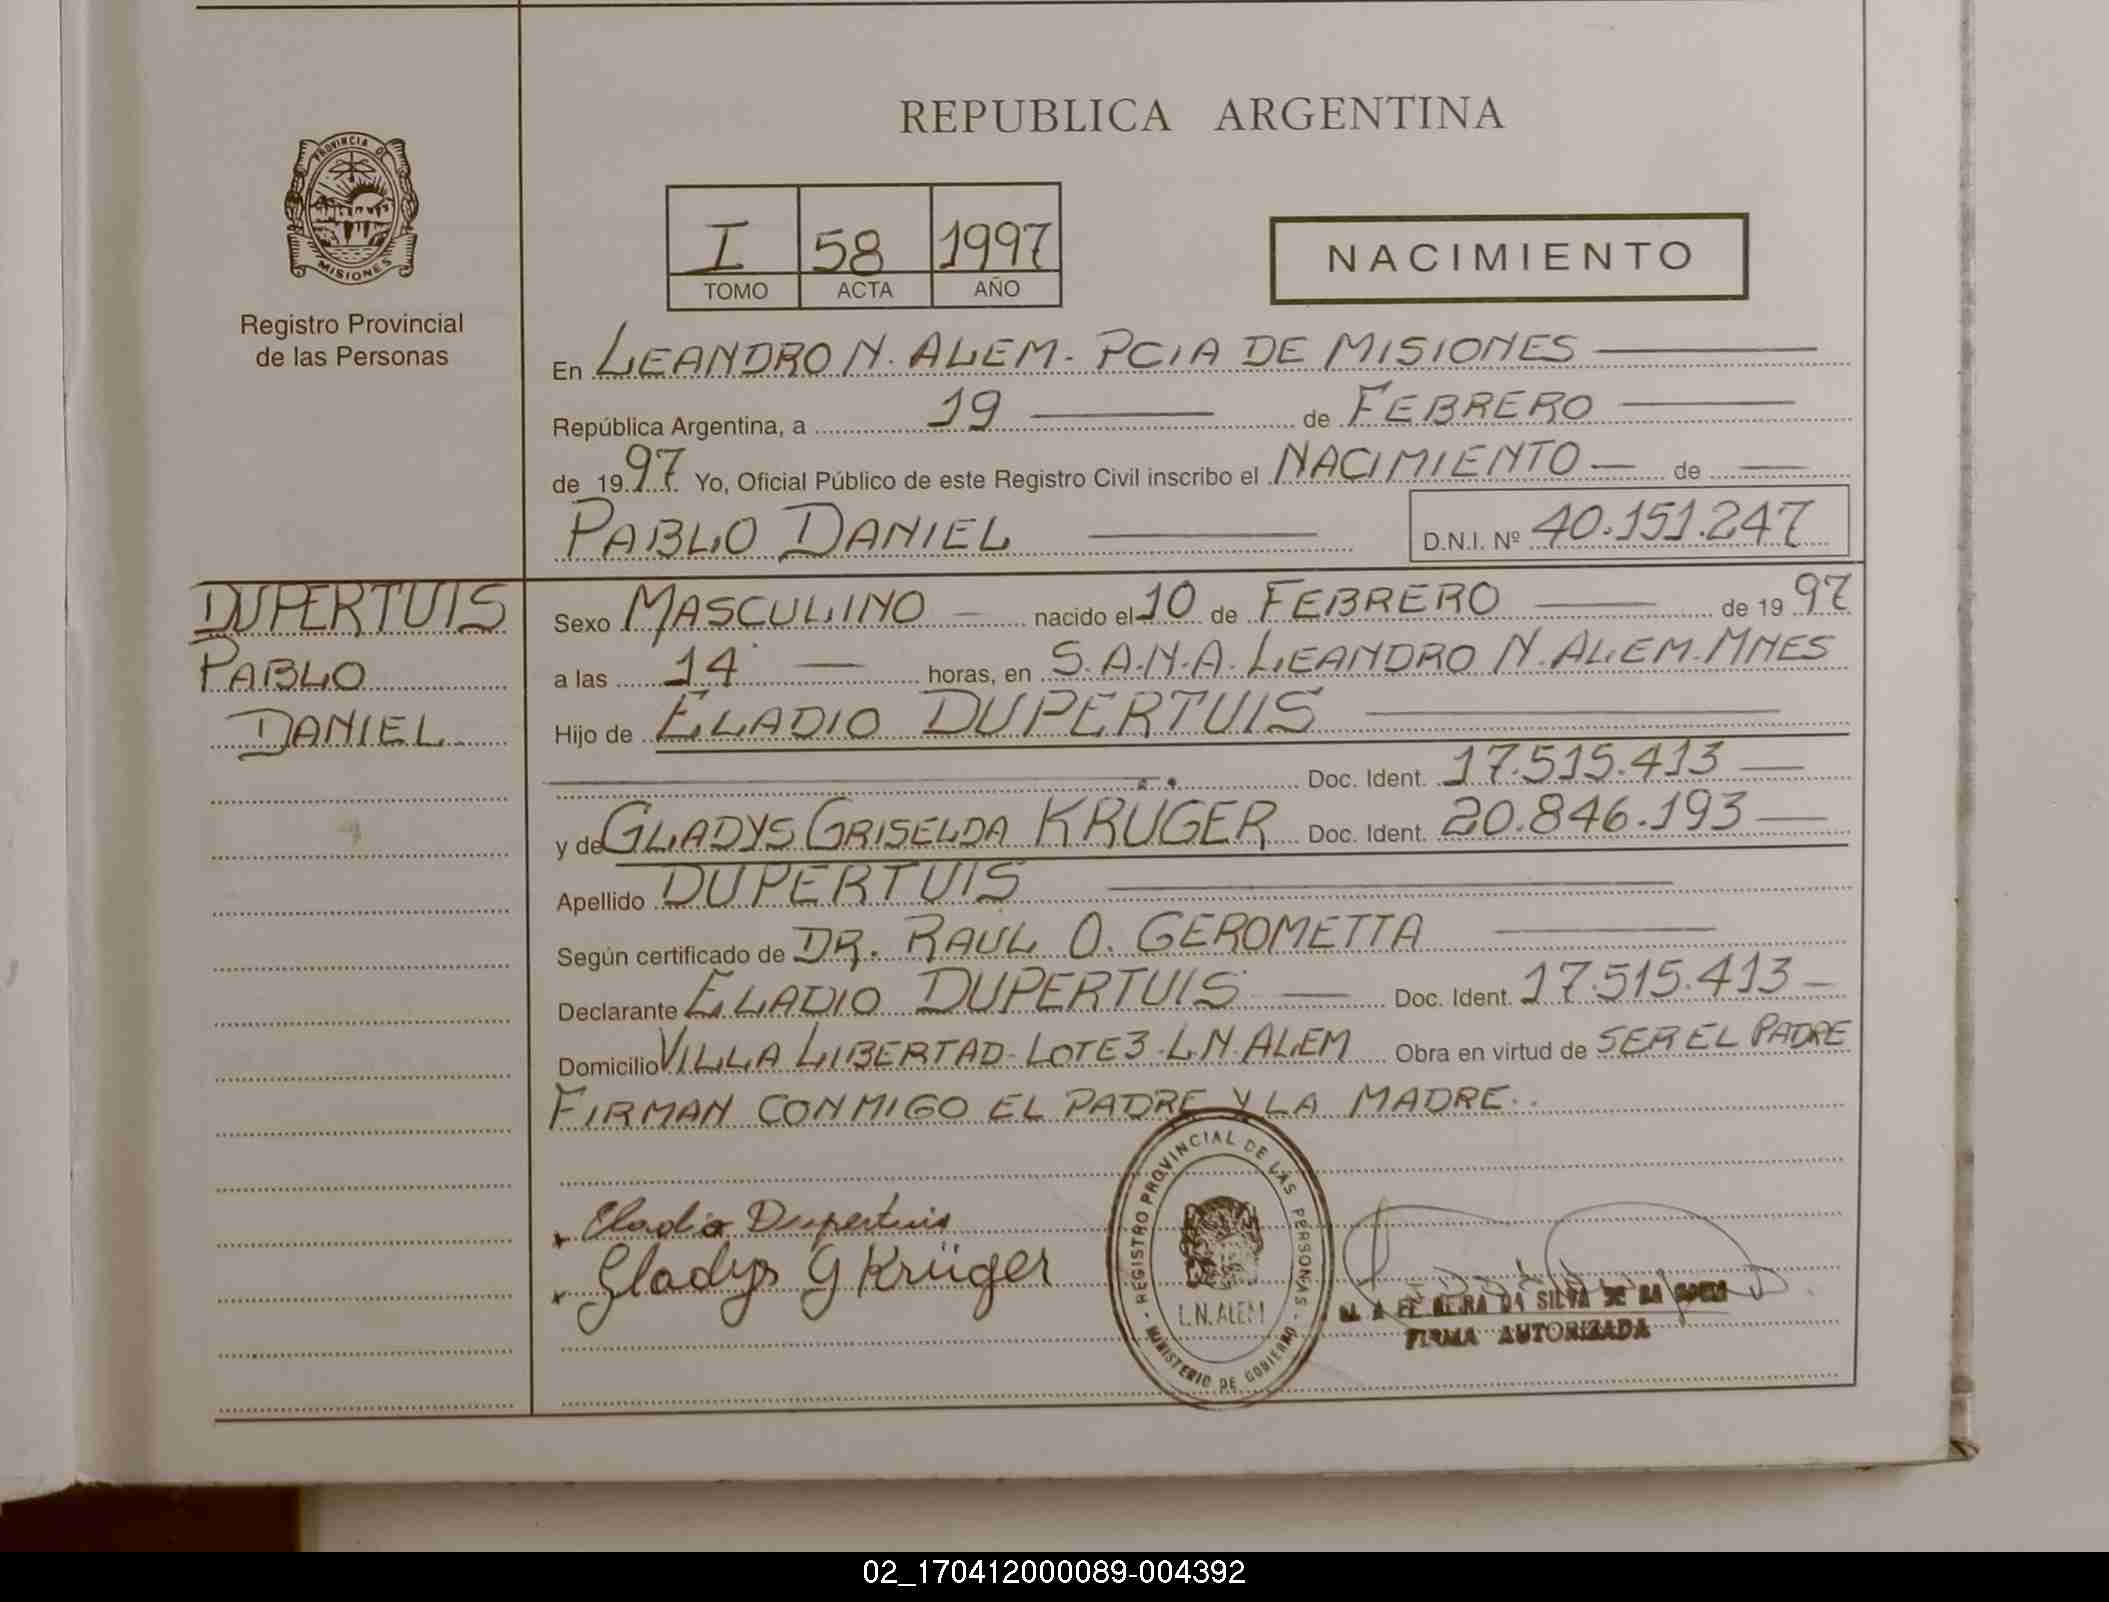 REPUBLICA ARGENTINA
PROVINCIA DE
MISIONES
Registro Provincial
de las Personas
I 58 1997
TOMO ACTA AÑO
NACIMIENTO
En LEANDRO N. ALEM - PCIA DE MISIONES
República Argentina, a 19 de FEBRERO
de 1997 Yo, Oficial Público de este Registro Civil inscribo el NACIMIENTO de
PABLO DANIEL D.N.I. Nº 40.151.247
DUPERTUIS
PABLO
DANIEL
Sexo MASCULINO nacido el 10 de FEBRERO de 1997
a las 14 horas, en S.A.N.A. LEANDRO N. ALEM. MNES
Hijo de ELADIO DUPERTUIS
Doc. Ident. 17.515.413
y de GLADYS GRISELDA KRUGER Doc. Ident. 20.846.193
Apellido DUPERTUIS
Según certificado de DR. RAUL O. GEROMETTA
Declarante ELADIO DUPERTUIS Doc. Ident. 17.515.413
Domicilio VILLA LIBERTAD - LOTE 3 - L.N. ALEM Obra en virtud de SER EL PADRE
FIRMAN CONMIGO EL PADRE Y LA MADRE..
Eladio Dupertuis
Gladys G Krüger
REGISTRO PROVINCIAL DE LAS PERSONAS
L.N. ALEM
MINISTERIO DE GOBIERNO
DA SILVA DE
FIRMA AUTORIZADA
02_170412000089-004392